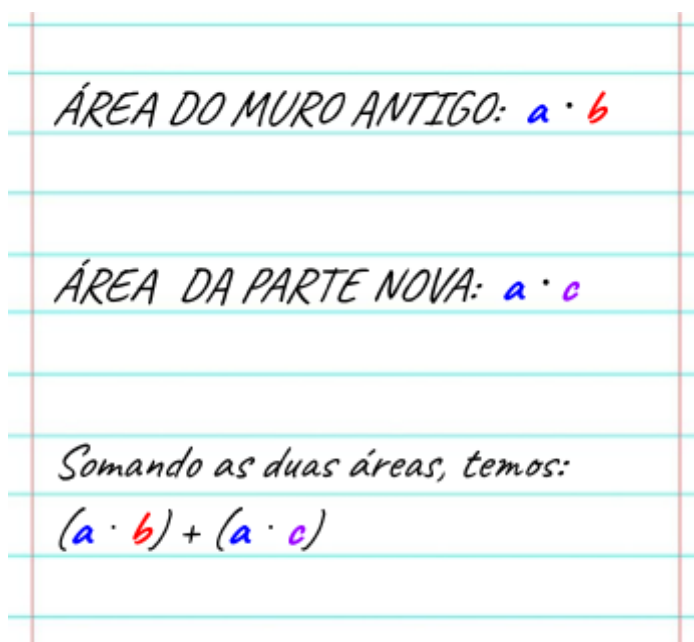 ÁREA DO MURO ANTIGO: a · b
ÁREA DA PARTE NOVA: a · c
Somando as duas áreas, temos:
(a · b) + (a · c)